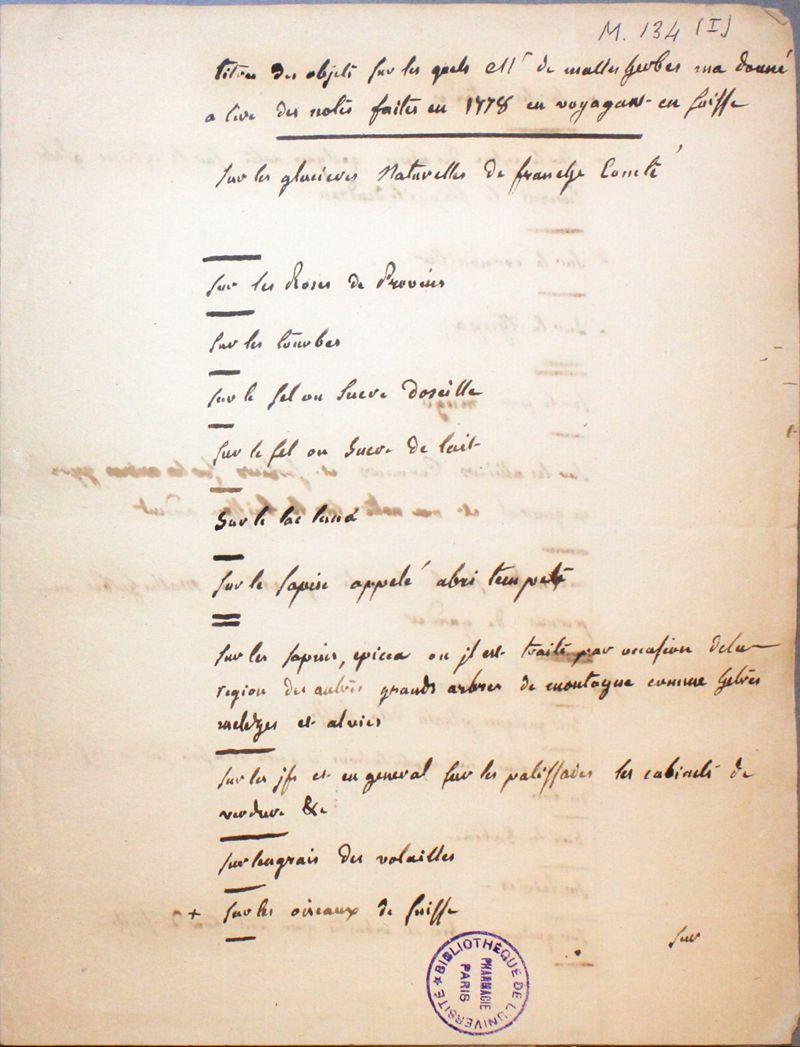 M. 134 (I)
titres des objets sur les quels Mr de malles herbes ma donné
a lire des notes faites en 1778 en voyagant en Suisse
Sur les glacieres Naturelles de franche Comté
Sur les Roses de Provins
Sur les tourbes
Sur le sel ou sucre doseille
Sur le sel ou sucre de lait
Sur le lac
Sur le sapin appelé abri tempete
Sur les sapins, epicea ou jl est traité par occasion dela
region des autres grands arbres de montagne comme hetres
melezes et alvies
Sur les jfs et en general sur les palissades les cabinets de
verdure &c
Sur lengrais des volailles
+ Sur les oiseaux de Suisse
Sur
BIBLIOTHÈQUE DE L'UNIVERSITÉ
PHARMACIE
PARIS